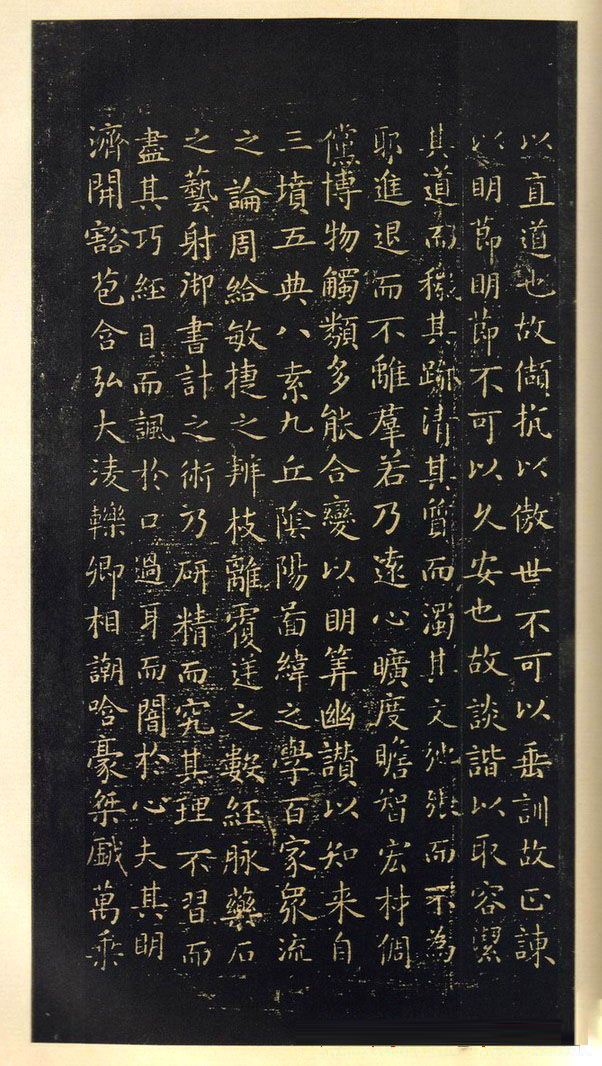 以直道也故抗以傲世不可以垂訓故正諫
以明節明節不可以久安也故談諧以取容潔
其道而穢其跡清其質而濁其文弛張而不為
耶進退而不離羣若乃遠心曠度贍智宏材倜
儻博物觸類多能合變以明筭幽讚以知来自
三墳五典八素九丘陰陽啚緯之學百家眾流
之論周給敏捷之辨枝離覆逆之數經脉藥石
之藝射御書計之術乃研精而究其理不習而
盡其巧經目而諷於口過耳而闇於心夫其明
濟開豁苞含弘大淩轢卿相謿哈豪桀戲萬乘